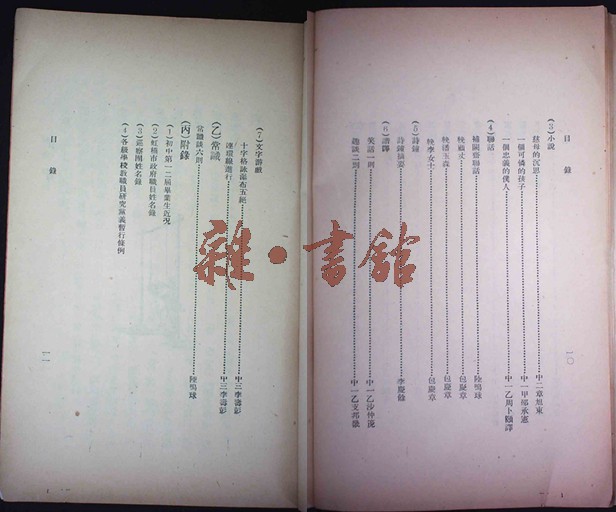 目錄
(3)小說
慈母的沉思……中二章旭東
一個可憐的孩子……中一甲 承憲
一個忠義的僕人……中一乙周卜頤譯
(4)聯話
補閑齋聯話……陸鳴球
輓 丈……包凝章
輓潘玉森……包凝章
輓李女士……包凝章
(5)詩鐘
詩鐘摘要……李慶餘
(6)諧譚
笑話一則……中一乙沙仲淹
趣談二則……中一乙支邦
一〇
(7)文字游戲
十字格詠瀑布五絕……中三李壽彭
連環線進行……中三李壽彭
(乙)常識
常識談六則……陸鳴球
(丙)附錄
(1)初中第一二屆畢業生近況
(2)虹橋市政府職員姓名錄
(3)巡察團姓名錄
(4)各級學校教職員研究黨義暫行條例
目錄
一一
雜·書館